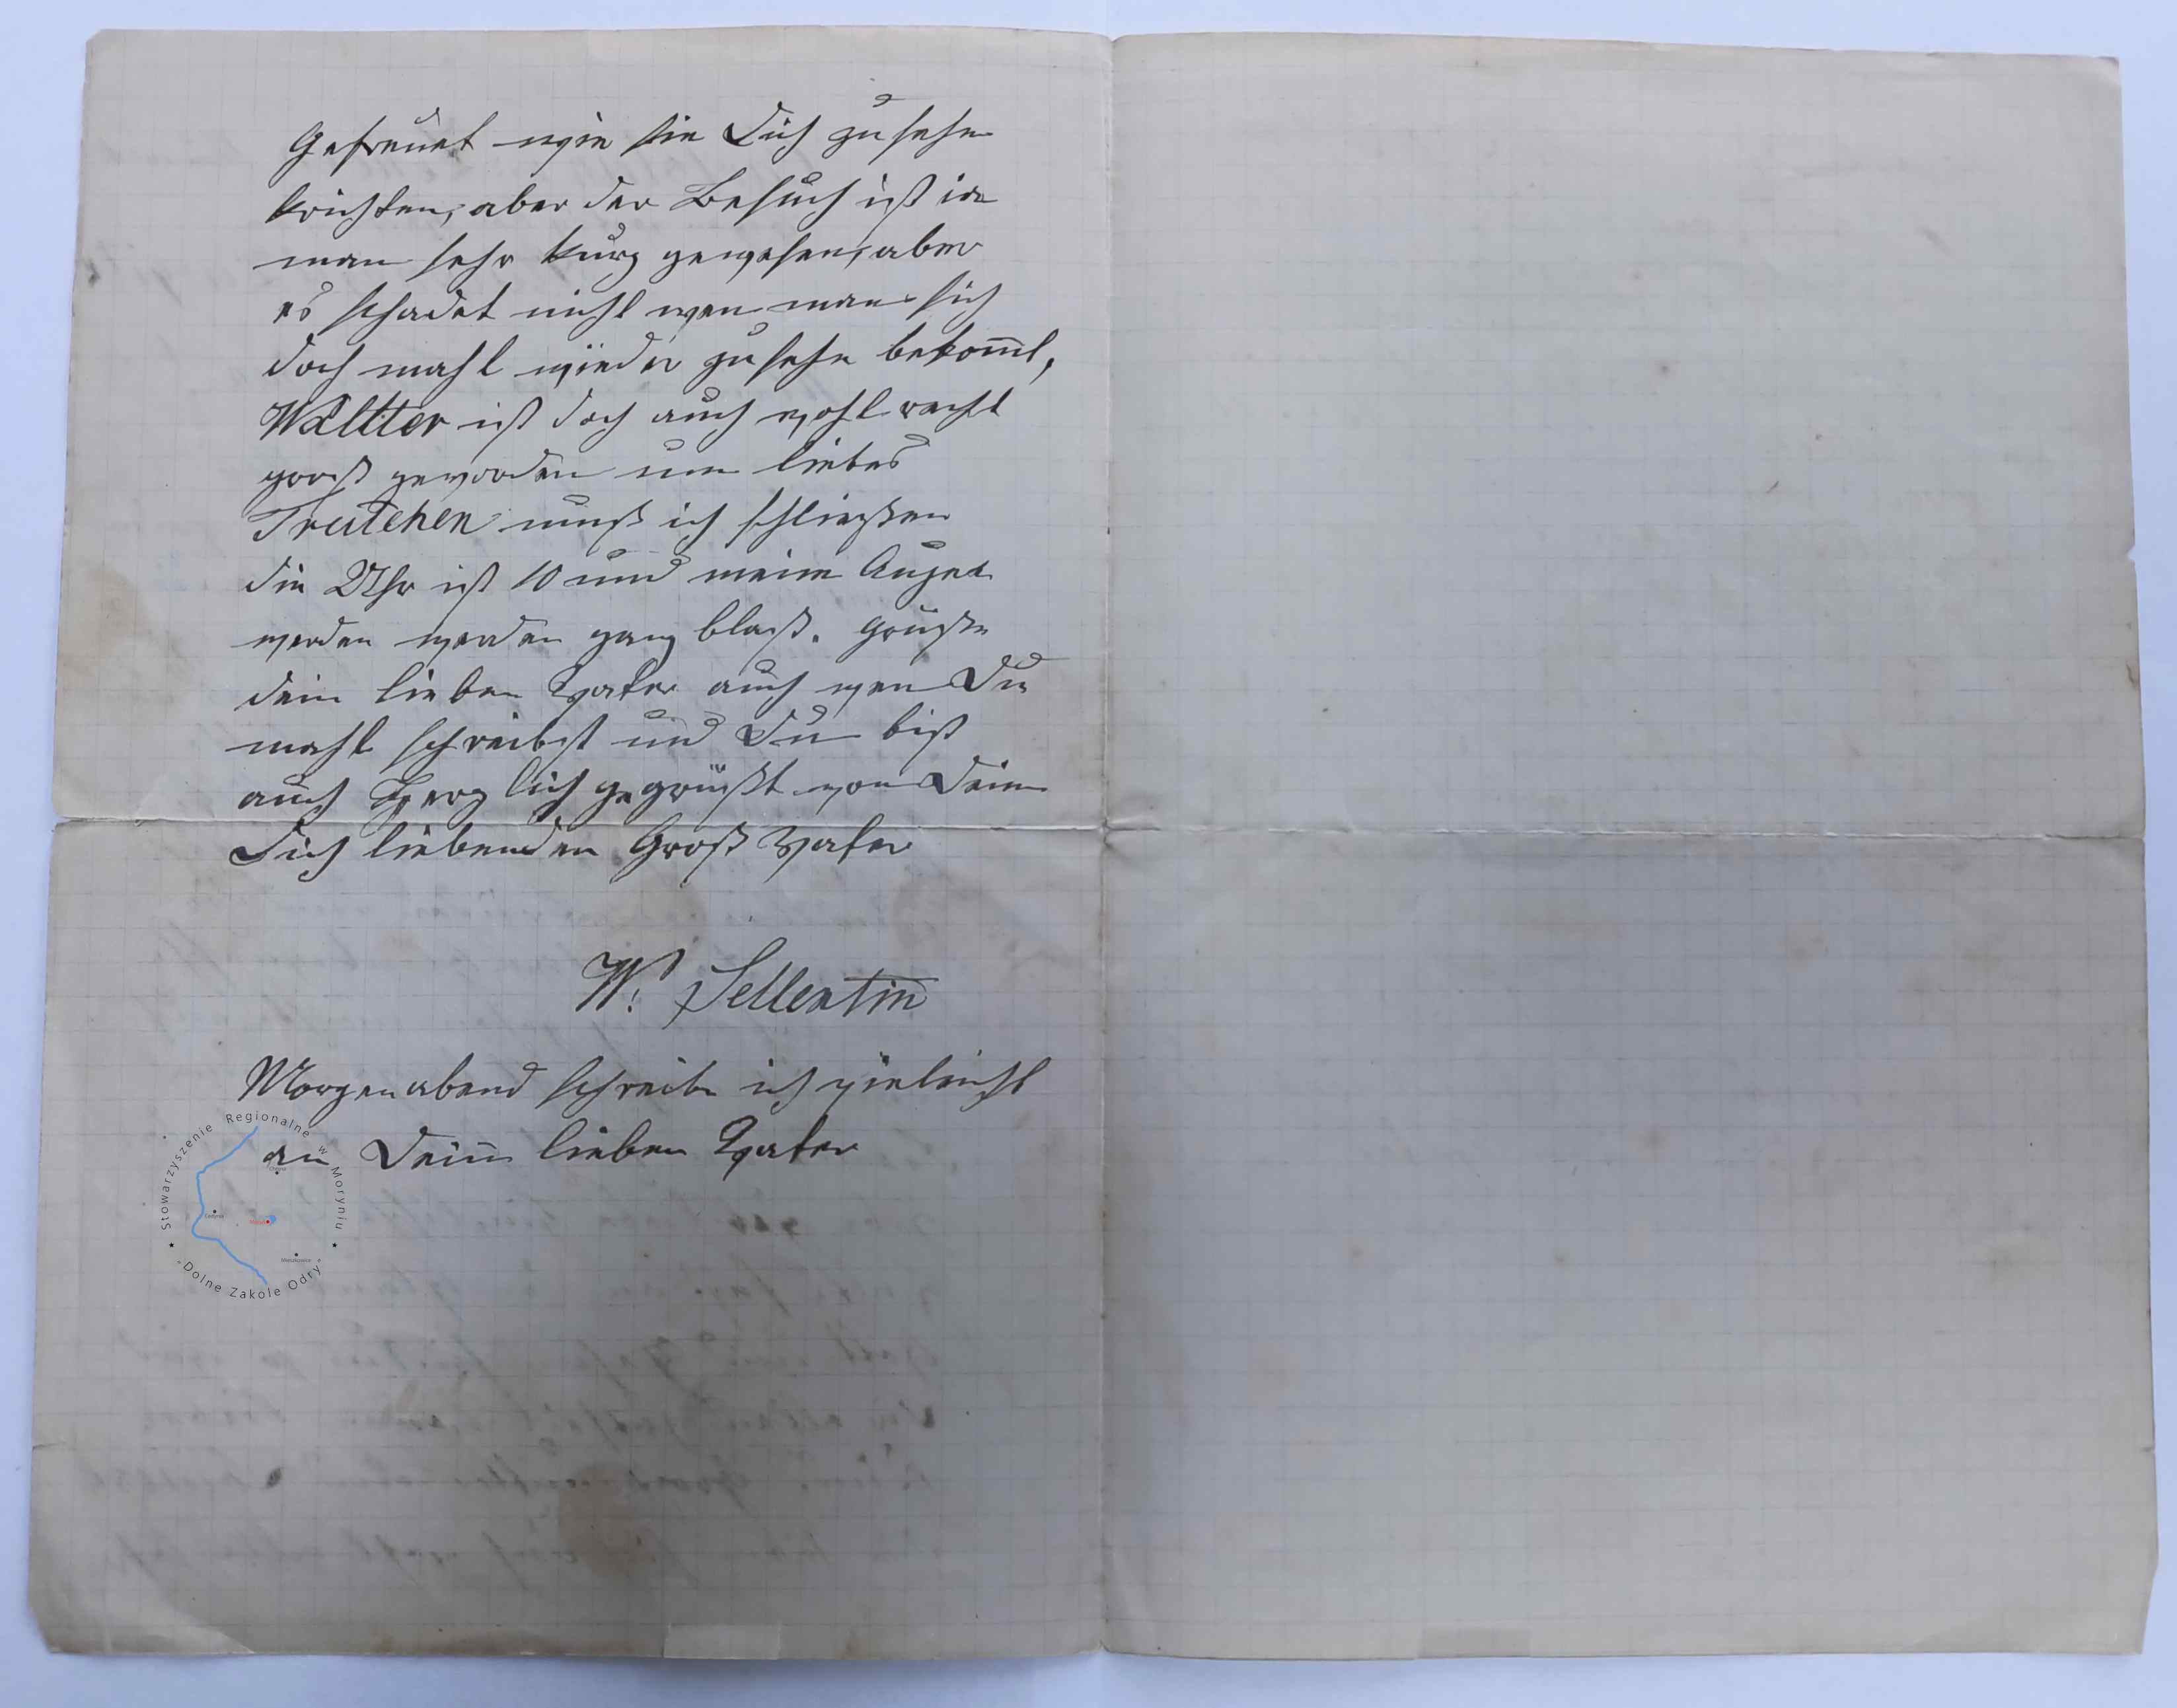 Gefreuet wie sie Dich zu sehn
krichten, aber der Besuch ist
man sehr kurz gewesen, aber
es schadet nicht wen man sich
doch mahl wieder zu sehn bekomt,
Waltter ist doch auch wohl recht
groß geworden nun liebes
Trutchen muß ich schließen
die Uhr ist 10 und meine Augen
werden werden ganz blaß. Grüße
dein lieben Vater auch wen Du
mahl schreibst und Du bist
auch Herzlich gegrüßt von Dein
Dich liebenden Groß Vater
W. Sellentin
Morgen abend schreibe ich vieleicht
an Dein lieben Vater
Stowarzyszenie Regionalne w Moryniu
"Dolne Zakole Odry"